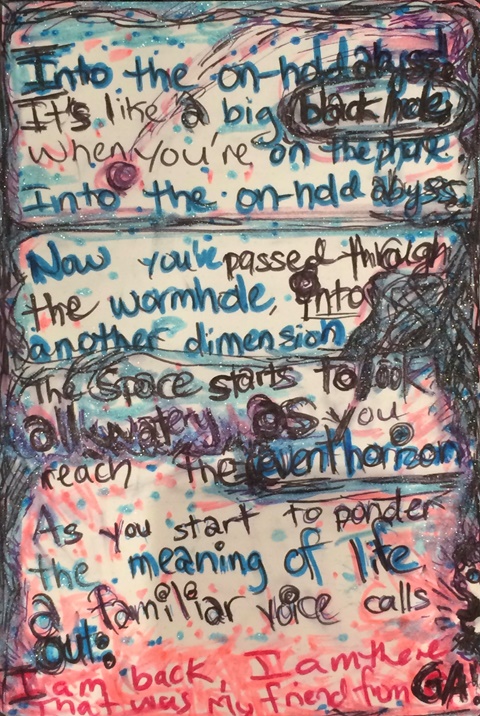 Into the on-hold abyss!
It's like a big black hole
When you're on the phone
Into the on-hold abyss.
Now you've passed through
the wormhole, into
another dimension
The Space starts to look
all watery as you
reach the event horizon
As you start to ponder
the meaning of life
a familiar voice calls
out:
I am back, I am there
That was my friend from GA!